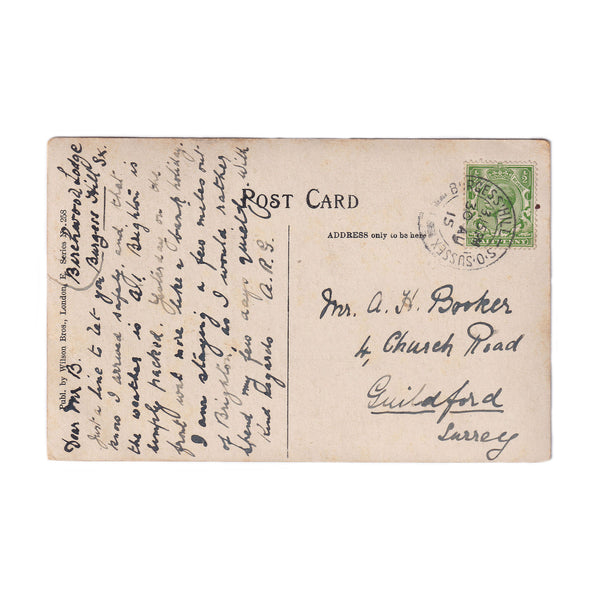 Publ. by Wilson Bros., London, E. Series No. 258
Birchwood Lodge
Burgess Hill, Sx.
Dear Mr B.
Just a line to let you
know I arrived safely, and that
the weather is A1. Brighton is
simply packed. Yesterday on the
front was more like a Bank holiday.
I am staying a few miles out
of Brighton, as I would rather
spend my few days quietly. With
Kind Regards A.R.G.
POST CARD
ADDRESS only to be here
Mr. A. H. Booker
4, Church Road
Guildford
Surrey
BURGESS HILL S.O. SUSSEX
6 PM
30 AU
15